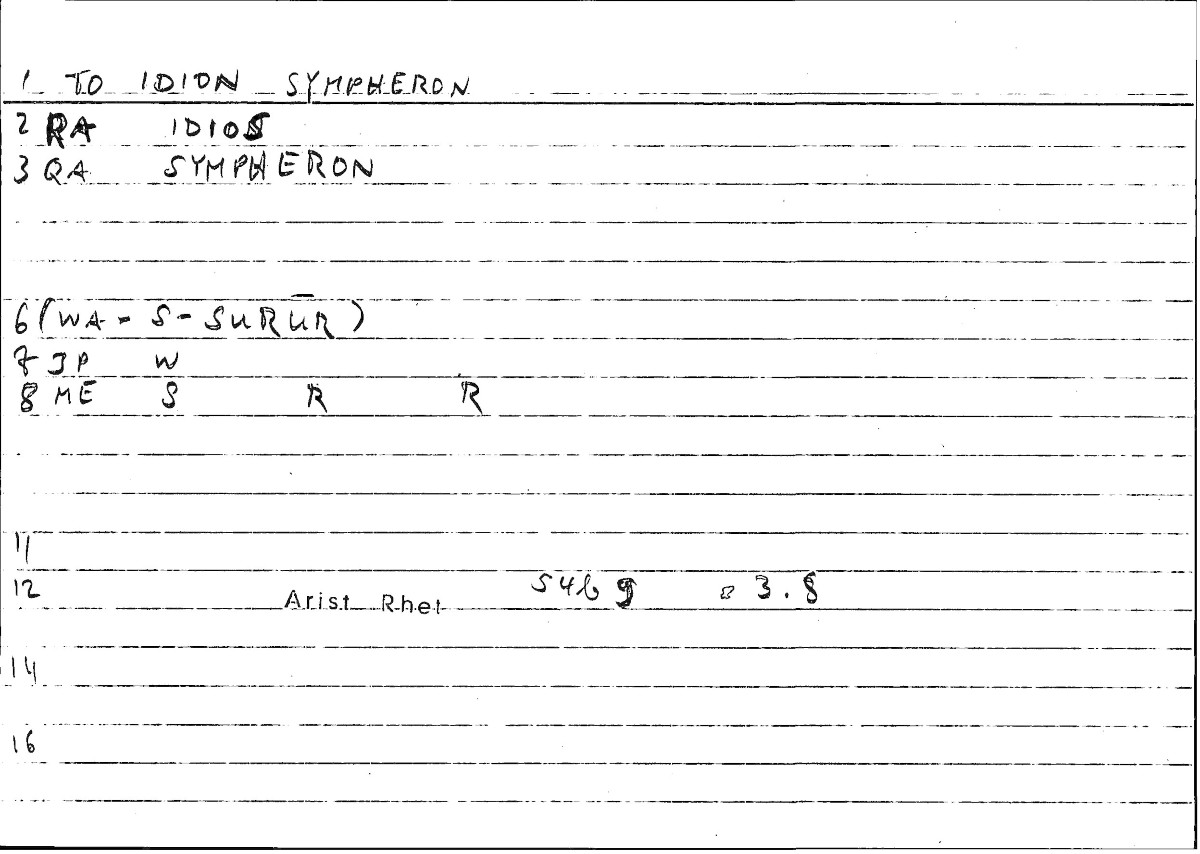 1 TO IDION SYMPHERON
2 RA IDIOS
3 QA SYMPHERON
6 (WA-S-SURŪR)
7 JP W
8 ME S R R
11
12 Arist Rhet 54b9 3.8
14
16